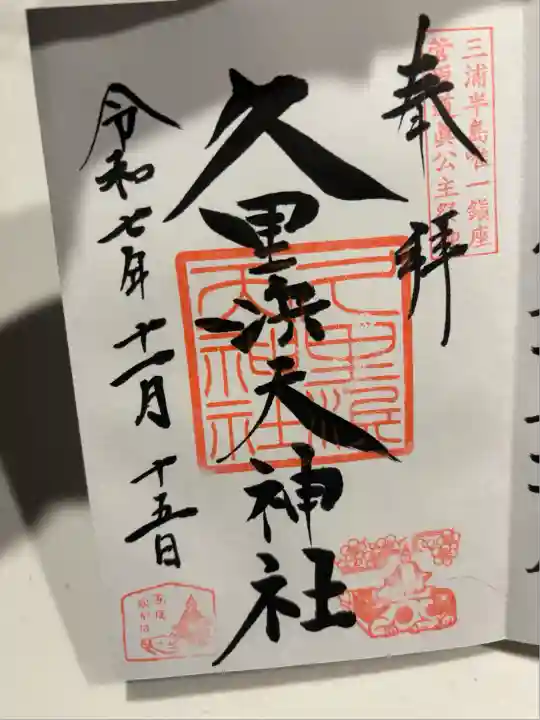 三浦半島唯一鎮座
菅原道眞公主祭神
奉拝
久里浜天神社
久里濱
天神社
令和七年十一月十五日